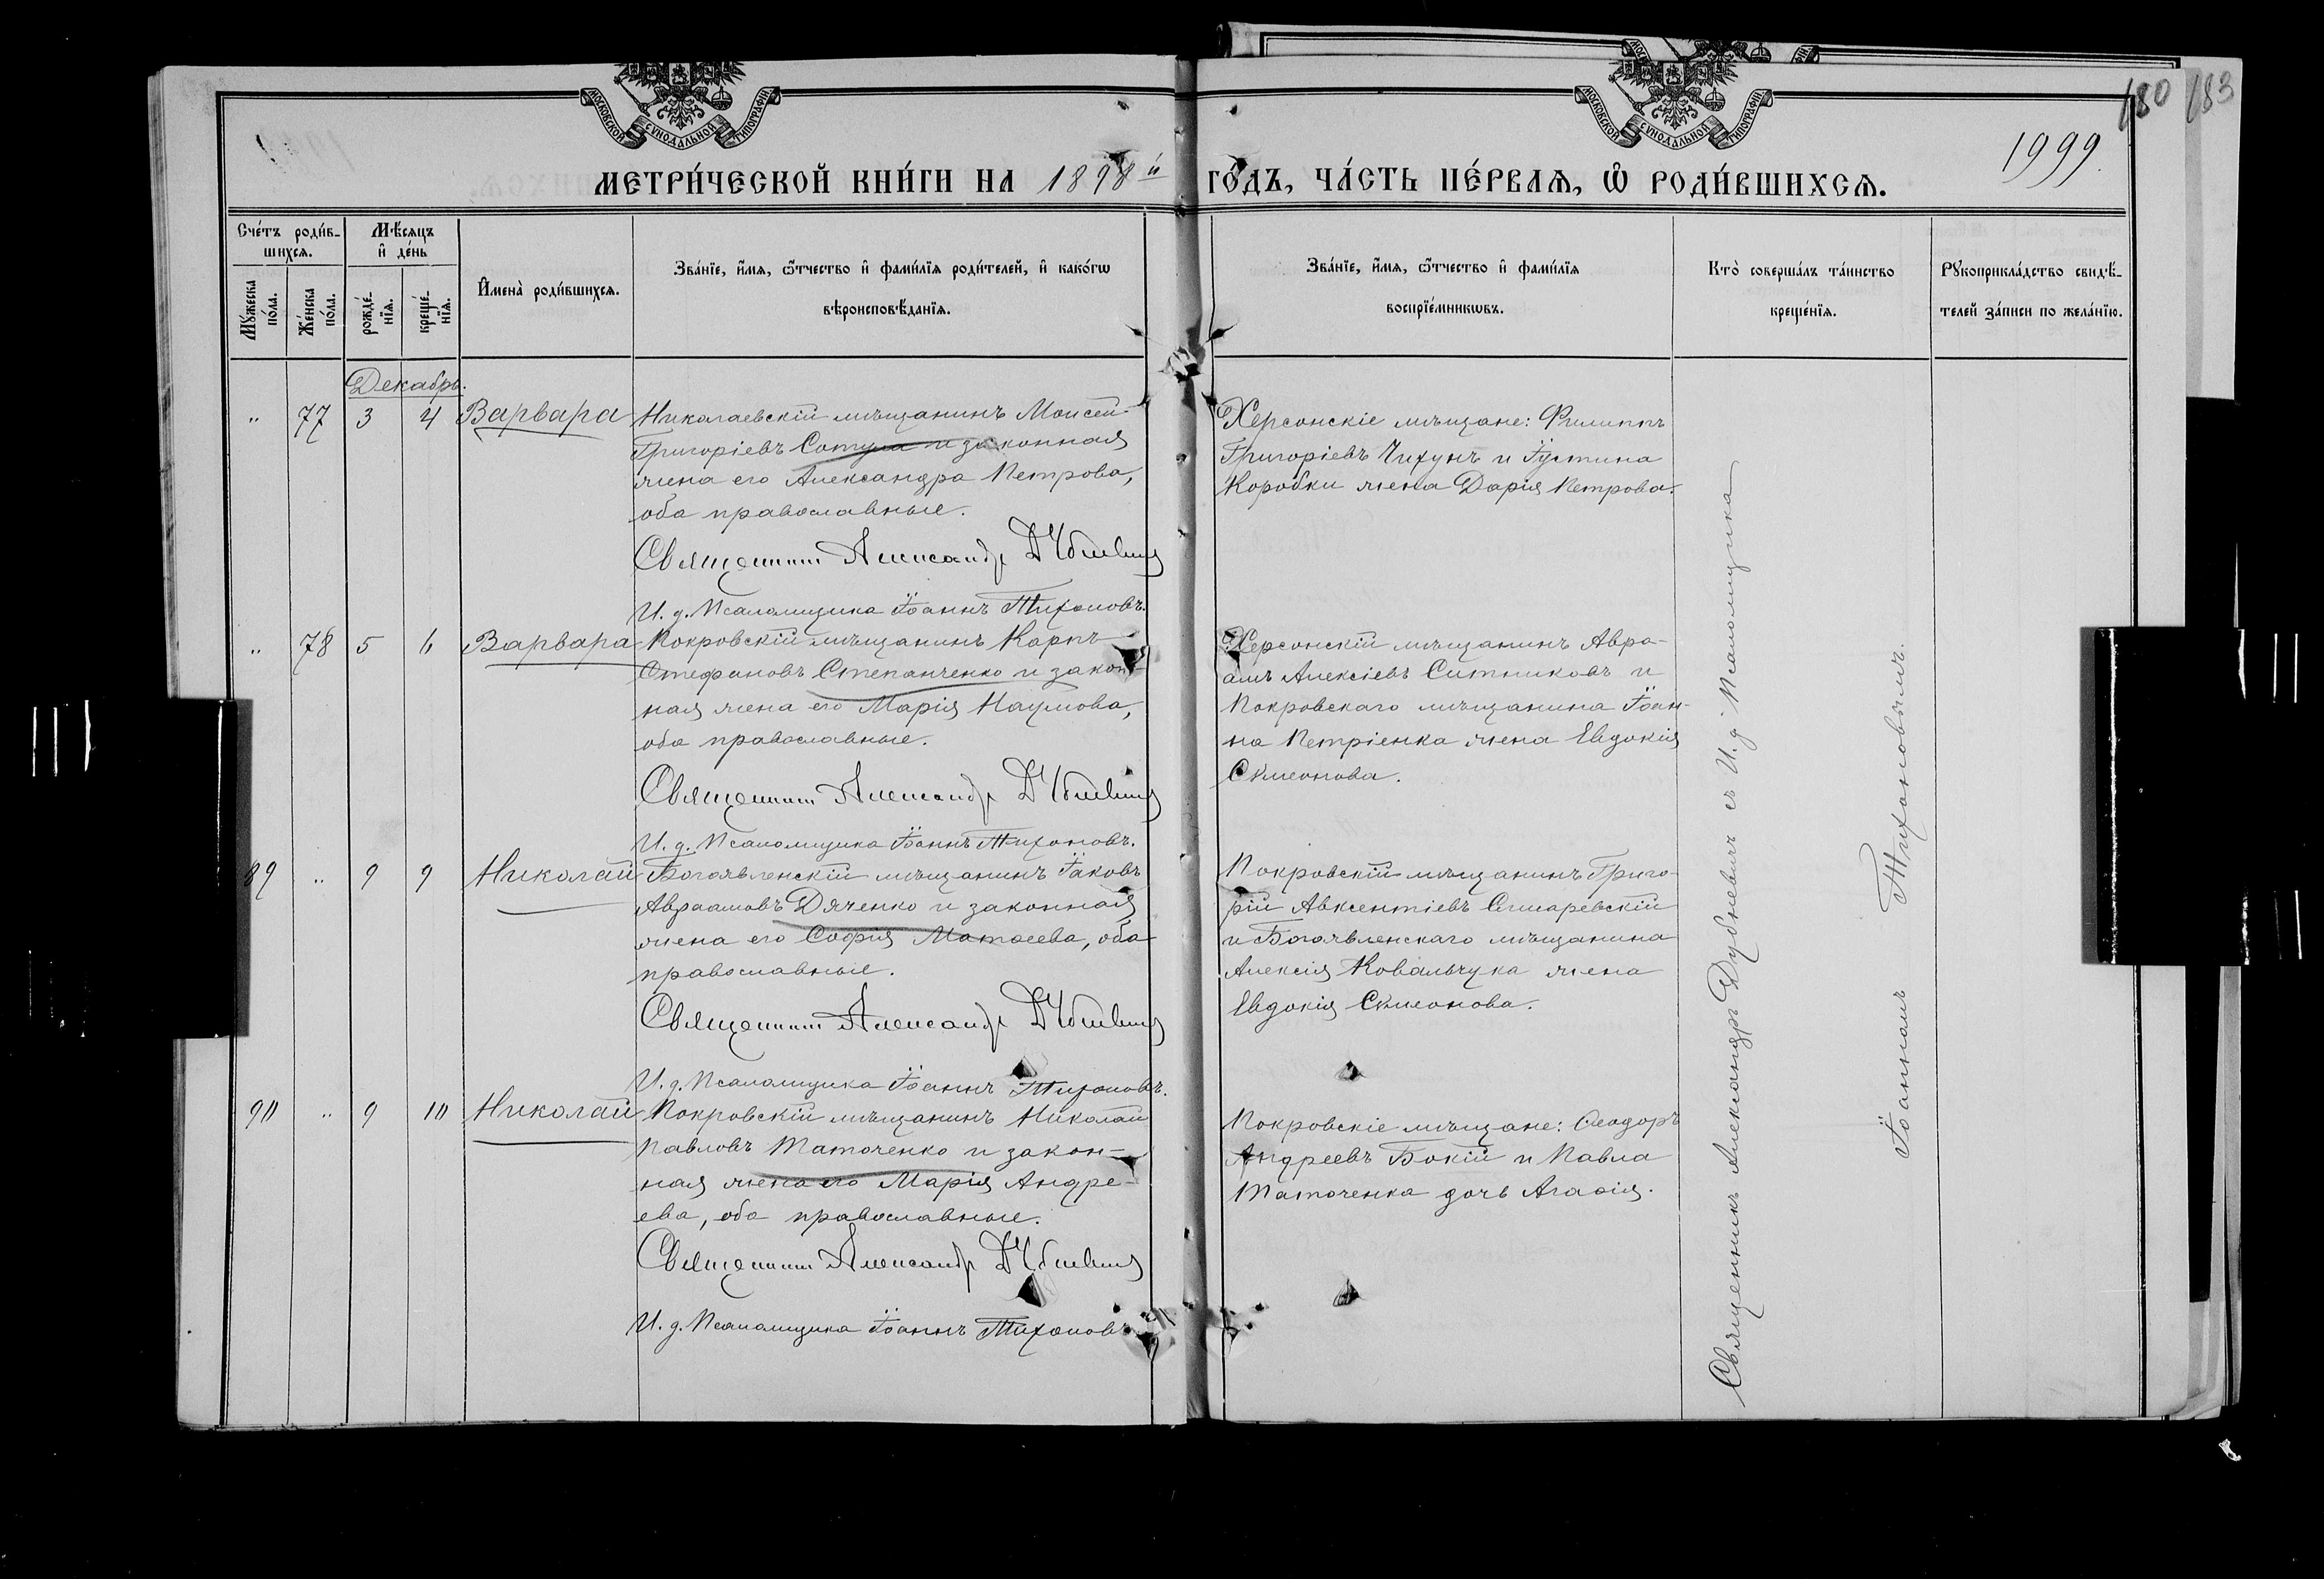 МОСКОВСКОЙ СѴНОДАЛЬНОЙ ТИПОГРАФІИ
МОСКОВСКОЙ СѴНОДАЛЬНОЙ ТИПОГРАФІИ
180 183
1999
МЕТРИ́ЧЕСКОЙ КНИ́ГИ НА 1898й ГО́ДЪ, ЧА́СТЬ ПЕ́РВАѦ, Ѡ РОДИ́ВШИХСѦ.
Сче́тъ роди́в-
шихся.
Мꙋ́жеска по́ла.
Же́нска по́ла.
Мѣ́сяцъ
и҆ де́нь
рожде́-
нїя.
креще́-
нїя.
И҆мена̀ роди́вшихся.
Зва́нїе, и҆́мя, ѻ҆́тчество и҆ фами́лїя роди́телей, и҆ како́гѡ
вѣроисповѣ́данїя.
Зва́нїе, и҆́мя, ѻ҆́тчество и҆ фами́лїя
воспрїе́мникѡвъ.
Кто̀ соверша́лъ та́инство
креще́нїя.
Рꙋкоприкла́дство свидѣ́-
телей за́писи по жела́нїю.
Декабрь.
" 77 3 4 Варвара
Николаевскій мѣщанинъ Моисей
Григоріевъ Сотула и законная
жена его Александра Петрова,
оба православные.
Священникъ Александръ Дубневичъ
И. д. Псаломщика Іоаннъ Тихоновъ.
Херсонскіе мѣщане: Филиппъ
Григоріевъ Чихунъ и Іустина
Коробки жена Дарія Петрова.
" 78 5 6 Варвара
Покровскій мѣщанинъ Карпъ
Стефановъ Степанченко и закон-
ная жена его Марія Наумова,
оба православные.
Священникъ Александръ Дубневичъ
И. д. Псаломщика Іоаннъ Тихоновъ.
Херсонскій мѣщанинъ Авра-
амъ Алексіевъ Ситниковъ и
Покровскаго мѣщанина Іоан-
на Петріенка жена Евдокія
Симеонова.
89 " 9 9 Николай
Богоявленскій мѣщанинъ Іаковъ
Авраамовъ Дяченко и законная
жена его Софія Матѳеева, оба
православные.
Священникъ Александръ Дубневичъ
И. д. Псаломщика Іоаннъ Тихоновъ.
Покровскій мѣщанинъ Григо-
рій Авксентіевъ
и Богоявленскаго мѣщанина
Алексія Ковальчука жена
Евдокія Симеонова.
90 " 9 10 Николай
Покровскій мѣщанинъ Николай
Павловъ Таточенко и закон-
ная жена его Марія Андре-
ева, оба православные.
Священникъ Александръ Дубневичъ
И. д. Псаломщика Іоаннъ Тихоновъ
Покровскіе мѣщане: Ѳеодоръ
Андреевъ Бокій и Павла
Таточенка дочь Агаѳія.
Священникъ Александръ Дубневичъ съ И. д. Псаломщика
Іоанномъ Тихоновымъ.